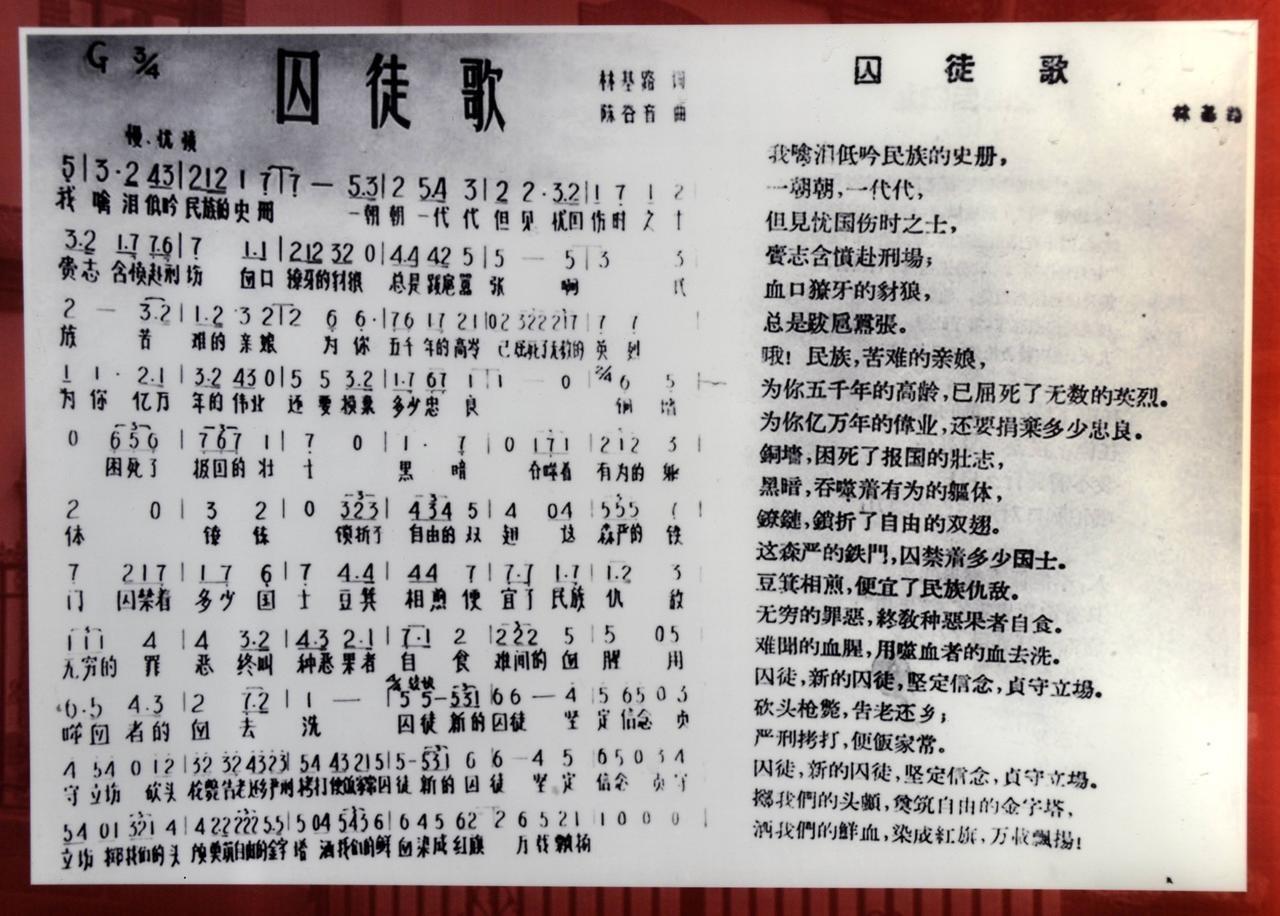 G 3/4
囚徒歌
林基路 词
陈谷音 曲
慢.忧愤
5|3·2 43|212 1 7|7 — 5.3|2 5.4 3|2 2·3.2|1 7 1 2
我 噙泪低吟民族的史册 一朝朝一代代但见忧国伤时之士
3.2 1.7 7.6|7 1.1|212 32 0|4.4 42 5|5 — 5|3 3
赍志含愤赴刑场 血口獠牙的豺狼 总是跋扈嚣张 啊 民
2 — 3.2|1.2 3 2|2 6 6·|76 17 21|02 322 217|7 7
族 苦难的亲娘 为你五千年的高岁 已屈死了无数的英烈
1 1· 2.1|3.2 43 0|5 5 3.2|1.7 67 1|1 — 0|2/4 6 5
为你亿万年的伟业还要损票多少忠良 铜墙
0 656|767 1|7 0|1· 7|0 171|212 3
困死了报国的壮士 黑暗吞噬着有为的躯
2 0|3 2|0 323|434 5|4 04|555
体 镣 锁折了自由的双翅 这森严的铁
7 217|1 7 6|7 4.4|44 7|7.7 1.7|1.2 3
门 囚禁着多少国士豆箕相煎便宜了民族仇敌
111 4|4 3.2|4.3 2.1|7·1 2|222 5|5 05
无穷的罪恶终叫种恶果者自食难闻的血腥用
6.5 4.3|2 7.2|1 —|5 5-531|66 — 4|5 65 0 3
者的血去洗 囚徒新的囚徒 坚定信念贞
4 54 0 12|32 32 4323|54 43215|5-531 6|6 — 4 5|65 0 3 4
守立场 砍头枪毙告老还乡严刑拷打便饭家常囚徒新的囚徒 坚定信念贞守
54 01 321 4|4 22 222 55|5 04 5436|6 45 62|2 6 5 21|1 0 0 0
立场 掷我们的头颅奠筑自由的金字塔 洒我们的鲜血染成红旗 万载飘扬
囚徒歌
林基路
我噙泪低吟民族的史册，
一朝朝，一代代，
但見忧国伤时之士，
賫志含憤赴刑場；
血口獠牙的豺狼，
总是跋扈嚣張。
哦！民族，苦难的亲娘，
为你五千年的高龄，已屈死了无数的英烈。
为你亿万年的偉业，还要捐棄多少忠良。
銅墻，困死了报国的壯志，
黑暗，吞噬着有为的軀体，
鐐鏈，鎖折了自由的双翅。
这森严的鉄門，囚禁着多少国士。
豆箕相煎，便宜了民族仇敌。
无穷的罪惡，終敎种恶果者自食。
难聞的血腥，用噬血者的血去洗。
囚徒，新的囚徒，坚定信念，貞守立場。
砍头枪斃，告老还乡；
严刑拷打，便飯家常。
囚徒，新的囚徒，坚定信念，貞守立場。
擲我們的头顱，奠筑自由的金字塔，
洒我們的鮮血，染成紅旗，万載飄揚！